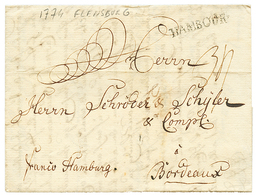 1774 FLENSBURG
HAMBOURG
Herrn
Herrn Schröder & Schÿler
& Compe.
à
Bordeaux
franco Hamburg.